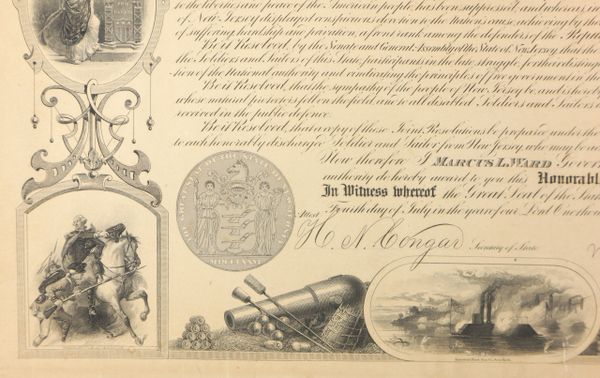 to the liberties and peace of the American people, has been suppressed, and whereas,
of New Jersey displayed conspicuous devotion to the Nation's cause, achieving by the
of suffering, hardship and privation, a front rank among the defenders of the Repu
Be it Resolved, by the Senate and General Assembly of the State of New Jersey, that the
the Soldiers and Sailors of this State, participants in the late struggle for the
tion of the National authority and vindicating the principles of free government in the
Be it Resolved, that the sympathy of the people of New Jersey be, and is hereby
whose natural protectors fell on the field, and to all disabled Soldiers and Sailors
received in the public defence.
Be it Resolved, that a copy of these Joint Resolutions be prepared under the
to each honorably discharged Soldier and Sailor from New Jersey, who may be
Now therefore I MARCUS L. WARD Gover
authority do hereby award to you this Honorabl
In Witness whereof the Great Seal of the State
Attest Fourth day of July in the year of our Lord One tho
H. N. Congar Secretary of State
THE GREAT SEAL OF THE STATE OF NEW JERSEY
MDCCLXXVI